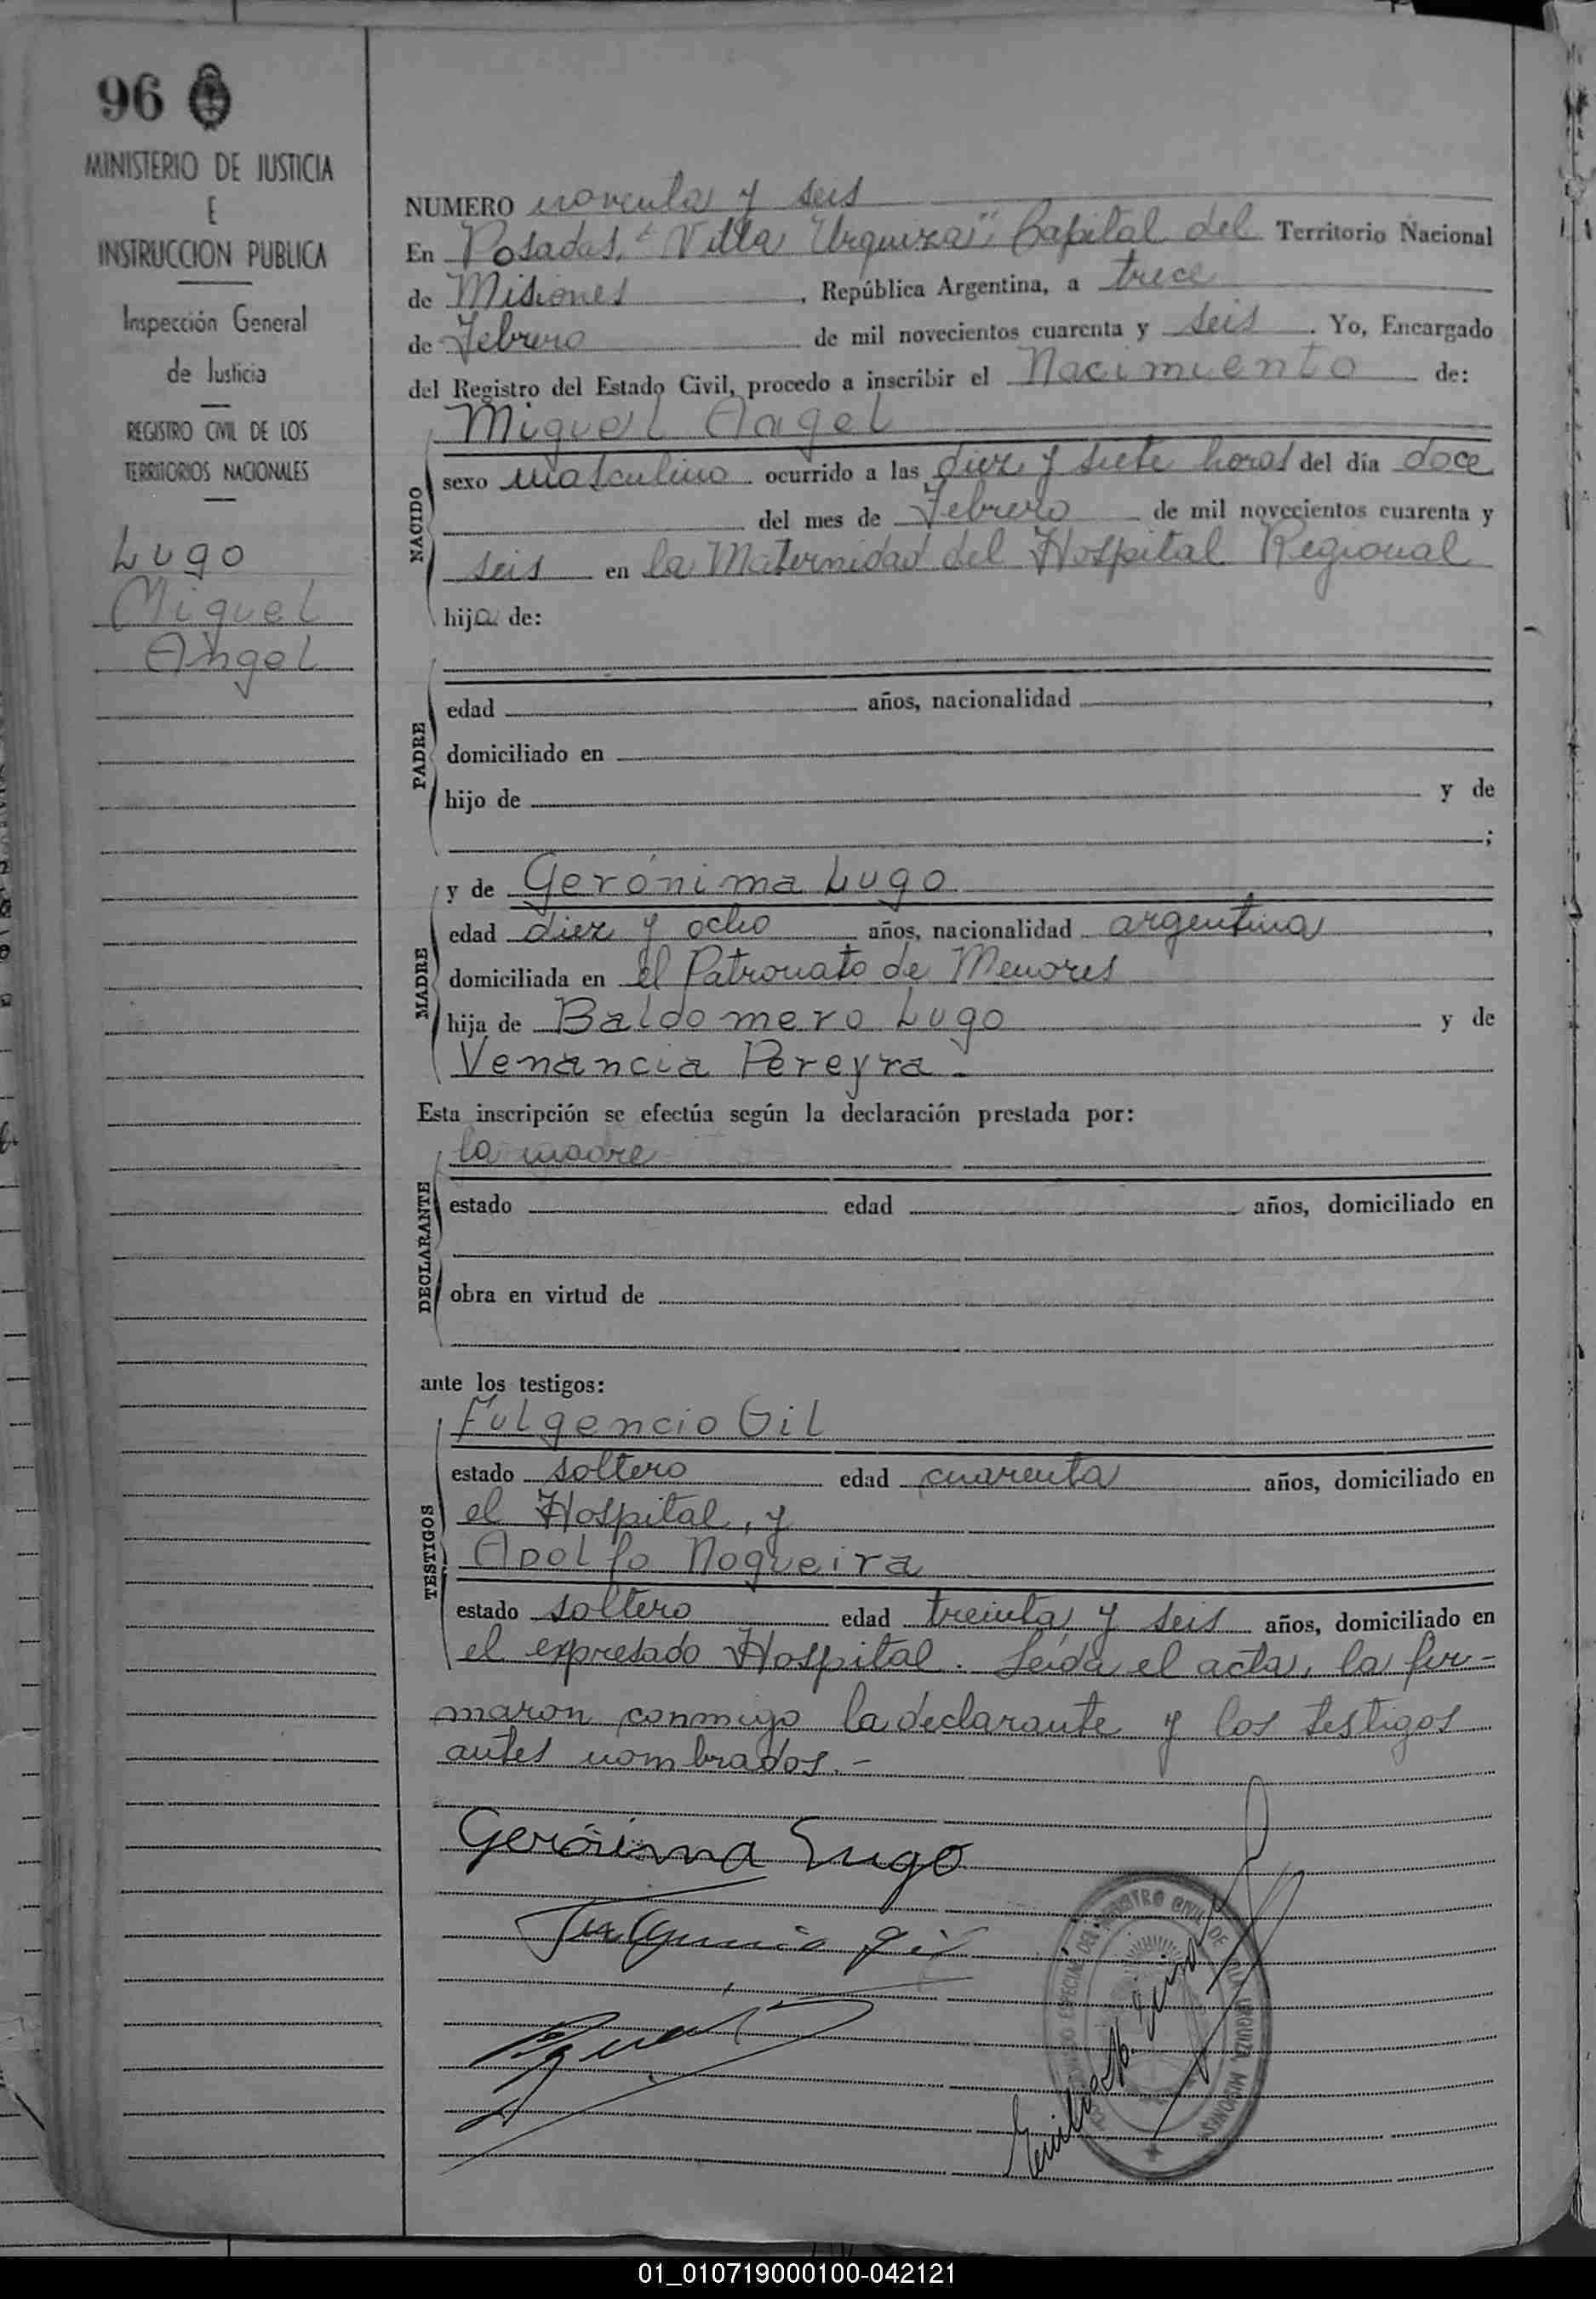 96
MINISTERIO DE JUSTICIA
E
INSTRUCCION PUBLICA
Inspección General
de Justicia
REGISTRO CIVIL DE LOS
TERRITORIOS NACIONALES
Lugo
Miguel
Angel
NUMERO noventa y seis
En Posadas, "Villa Urquiza", Capital del Territorio Nacional
de Misiones, República Argentina, a trece
de Febrero de mil novecientos cuarenta y seis. Yo, Encargado
del Registro del Estado Civil, procedo a inscribir el Nacimiento de:
Miguel Angel
NACIDO
sexo masculino ocurrido a las diez y siete horas del día doce
del mes de Febrero de mil novecientos cuarenta y
seis en la Maternidad del Hospital Regional
hijo de:
PADRE
edad años, nacionalidad ,
domiciliado en
hijo de y de
;
MADRE
y de Gerónima Lugo
edad diez y ocho años, nacionalidad argentina,
domiciliada en el Patronato de Menores
hija de Baldomero Lugo y de
Venancia Pereyra.-
Esta inscripción se efectúa según la declaración prestada por:
la madre
DECLARANTE
estado edad años, domiciliado en
obra en virtud de
ante los testigos:
Fulgencio Gil
TESTIGOS
estado soltero edad cuarenta años, domiciliado en
el Hospital, y
Adolfo Nogueira
estado soltero edad treinta y seis años, domiciliado en
el expresado Hospital. Leída el acta, la fir-
maron conmigo la declarante y los testigos
antes nombrados.-
Gerónima Lugo
Fulgencio Gil
REGISTRO CIVIL DE VILLA URQUIZA, MISIONES
01_010719000100-042121